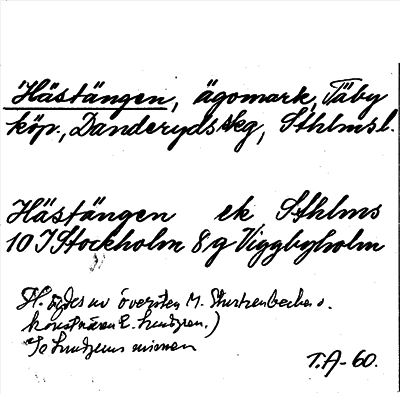 Hästängen, ägomark, Täby
köp., Danderyds skg, Sthlmsl.
Hästängen ek Sthlms
10 I Stockholm 8 g Viggbyholm
H. ägdes av översten M. Sturzenbecker o.
konstnären E. Lundgren.)
T.A-60.